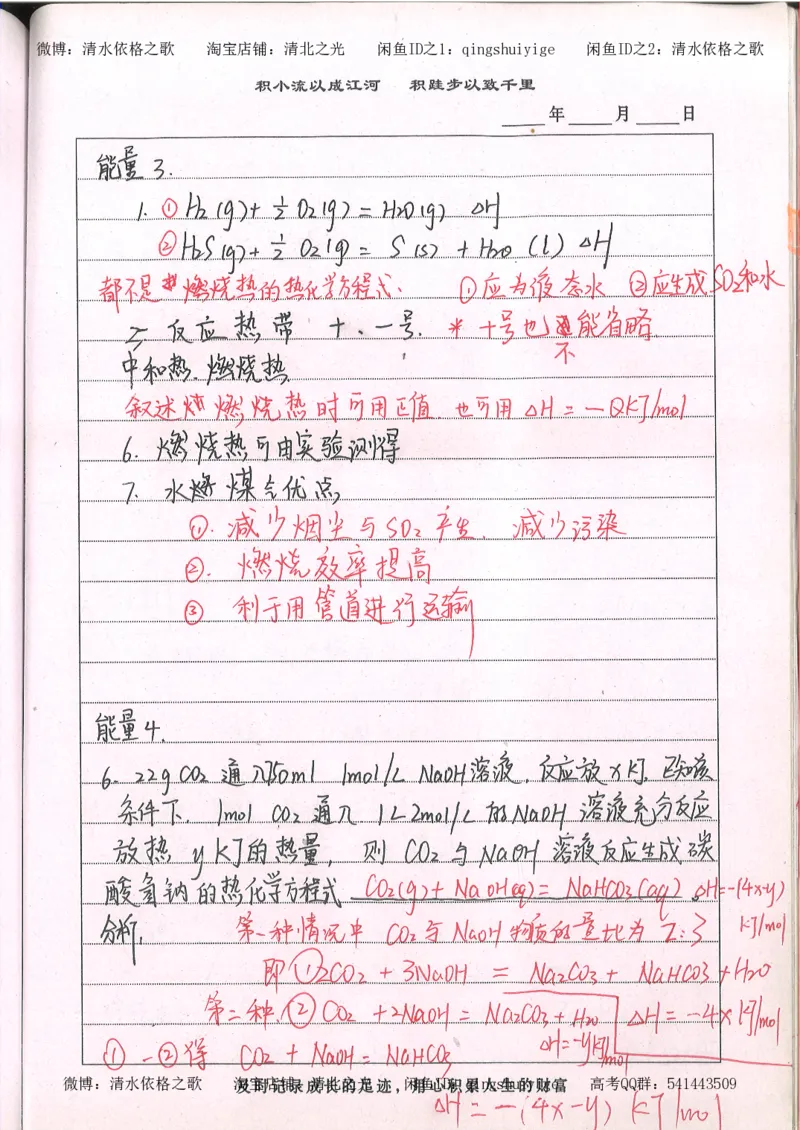 微博：清水依格之歌 淘宝店铺：清北之光 闲鱼ID之1：qingshuiyige 闲鱼ID之2：清水依格之歌
积小流以成江河 积跬步以致千里
年 月 日
能量3.
1. ① H₂(g)+ 1/2 O₂(g) = H₂O(g) △H
② H₂S(g)+ 1/2 O₂(g) = S(s) + H₂O (l) △H
都不是 燃烧热的热化学方程式. ①应为液态水 ②应生成SO₂和水
二 反应热带 +、-号. * +号也不能省略
中和热. 燃烧热
叙述 燃烧热时可用正值. 也可用 △H = -QkJ/mol
6. 燃烧热可由实验测得
7. 水煤气优点
①. 减少烟尘与SO₂产生. 减少污染
②. 燃烧效率提高
③ 利于用管道进行运输
能量4.
6. 22g CO₂ 通入750ml 1mol/L NaOH溶液. 反应放xkJ, 已知该
条件下. 1mol CO₂ 通入 1L 2mol/L 的NaOH 溶液充分反应
放热 y kJ的热量, 则 CO₂ 与 NaOH 溶液反应生成碳
酸氢钠的热化学方程式 CO₂(g)+ NaOH(aq) = NaHCO₃(aq) △H=-(4x-y)
kJ/mol
分析, 第一种情况中 CO₂与NaOH物质的量比为 2:3
即 ①2CO₂ + 3NaOH = Na₂CO₃ + NaHCO₃ + H₂O
△H = -4x kJ/mol
第二种. ② CO₂ +2NaOH = Na₂CO₃ + H₂O
△H=-ykJ/mol
① - ②得 CO₂ + NaOH = NaHCO₃
△H = -(4x-y) kJ/mol
微博：清水依格之歌 高考QQ群：541443509
记录成长的足迹，用心积累人生的财富